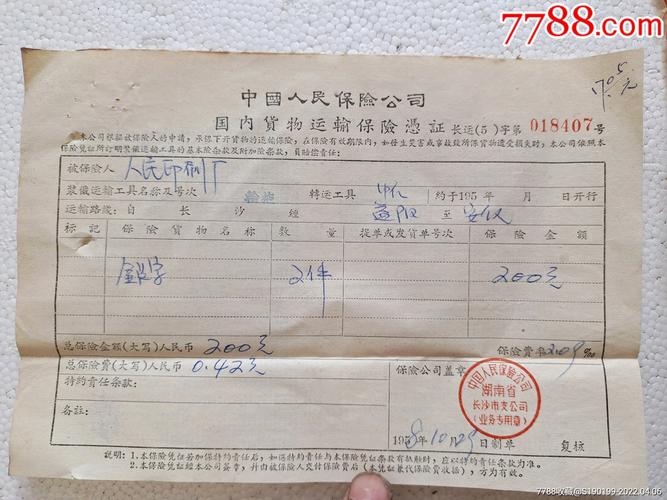 7788.com
中國人民保險公司
国内貨物运輸保險憑証 长运(5)字第 018407 号
本公司根据被保險人的申請，承保下开貨物的运輸保險，在保險有效期限内，如發生災害或事故致所保貨物遭受損失时，本公司依照本
保險凭証所訂明裝載运輸工具的基本險条款及附加險条款，負賠償責任：
被保險人 人民印刷厂
裝載运輸工具名称及号次 輪船 轉运工具 约于195 年 月 日开行
运輸路綫：自 长 沙 經 益阳 至 安化
标記 保險貨物名称 数量 提单或发貨单号次 保險金額
鉛字 2件 200元
总保險金額(大写)人民币 200元 保險費率 ‰
总保險費(大写)人民币 0.42元 保險公司蓋章
特約責任条款：
中国人民保險公司
湖南省
长沙市支公司
(业务专用章)
备註：
195 8年10月 日制单 复核
說明：1.本保險凭証若加保特約責任后，如遇特約責任与本保險凭証条款有抵触时，应以特約責任条款为准。
2.本保險凭証經本公司簽章，幷由被保險人交付保險費后(本凭証兼代保險費收据)，方为有效。
7788收藏@S190199-2022.04.06